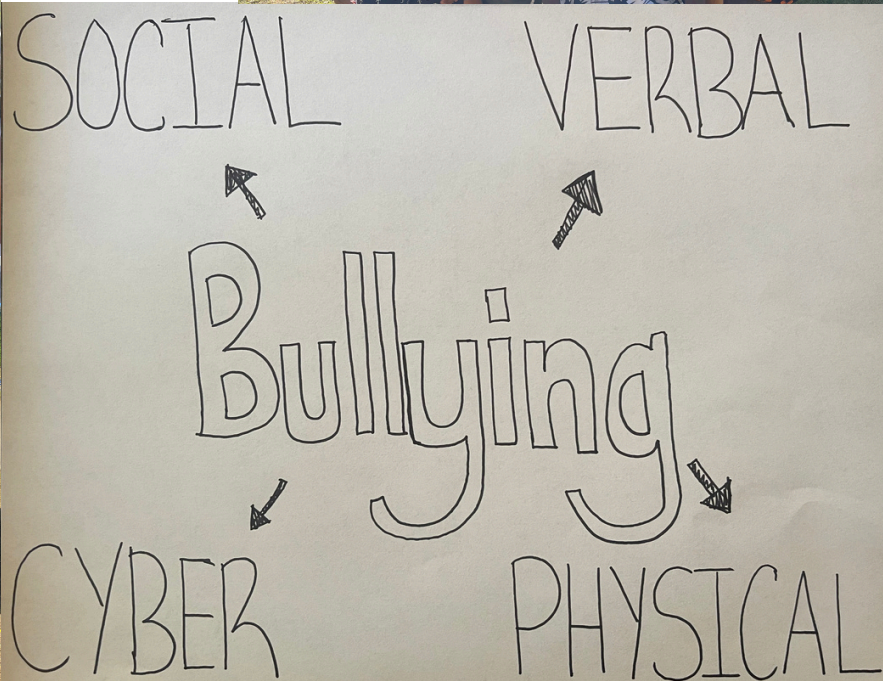 SOCIAL VERBAL
Bullying
CYBER PHYSICAL